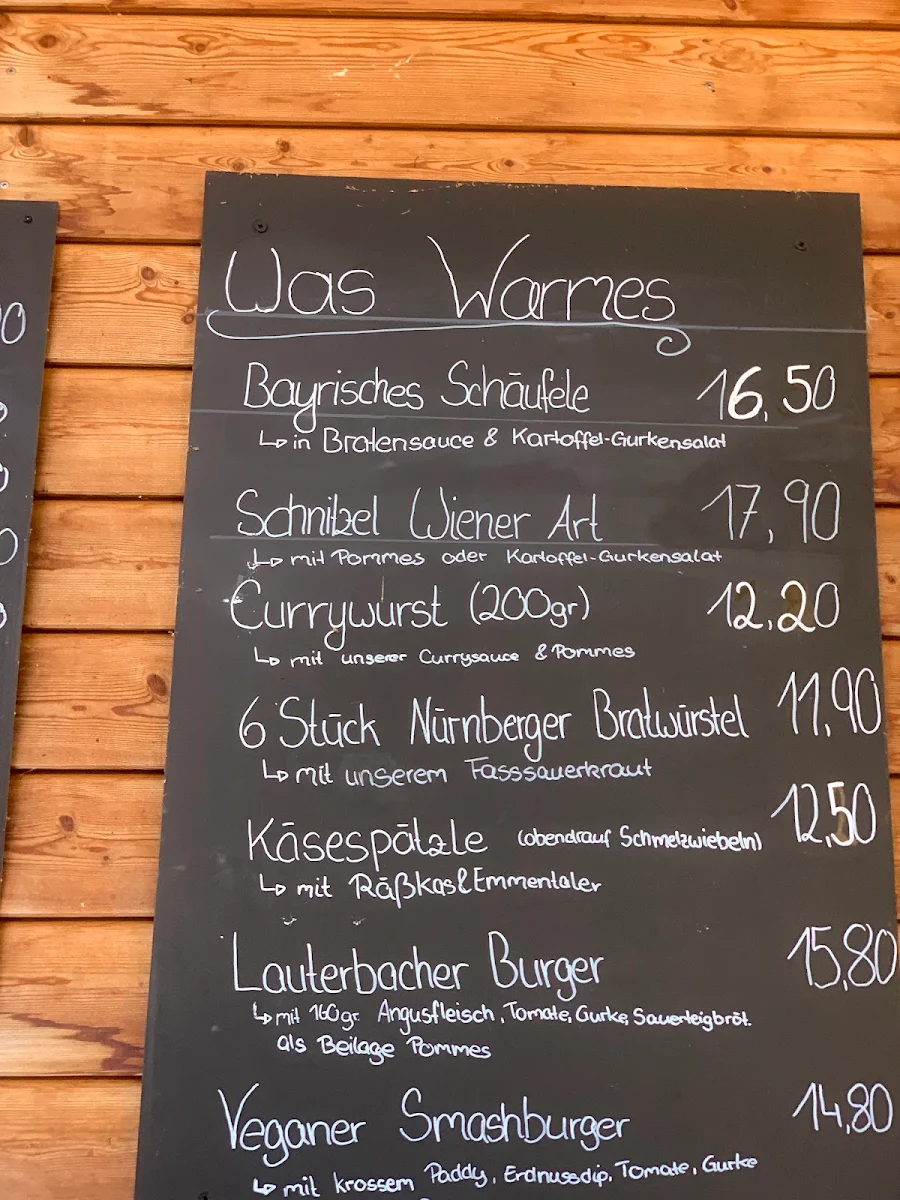 Was Warmes
Bayrisches Schäufele 16,50
↳ in Bratensauce & Kartoffel-Gurkensalat
Schnitzel Wiener Art 17,90
↳ mit Pommes oder Kartoffel-Gurkensalat
Currywurst (200gr) 12,20
↳ mit unserer Currysauce & Pommes
6 Stück Nürnberger Bratwürstel 11,90
↳ mit unserem Fasssauerkraut
Käsespätzle (obendrauf Schmelzwiebeln) 12,50
↳ mit Räßkas & Emmentaler
Lauterbacher Burger 15,80
↳ mit 160gr. Angusfleisch, Tomate, Gurke, Sauerteigbröt.
als Beilage Pommes
Veganer Smashburger 14,80
↳ mit krossem Paddy, Erdnussdip, Tomate, Gurke